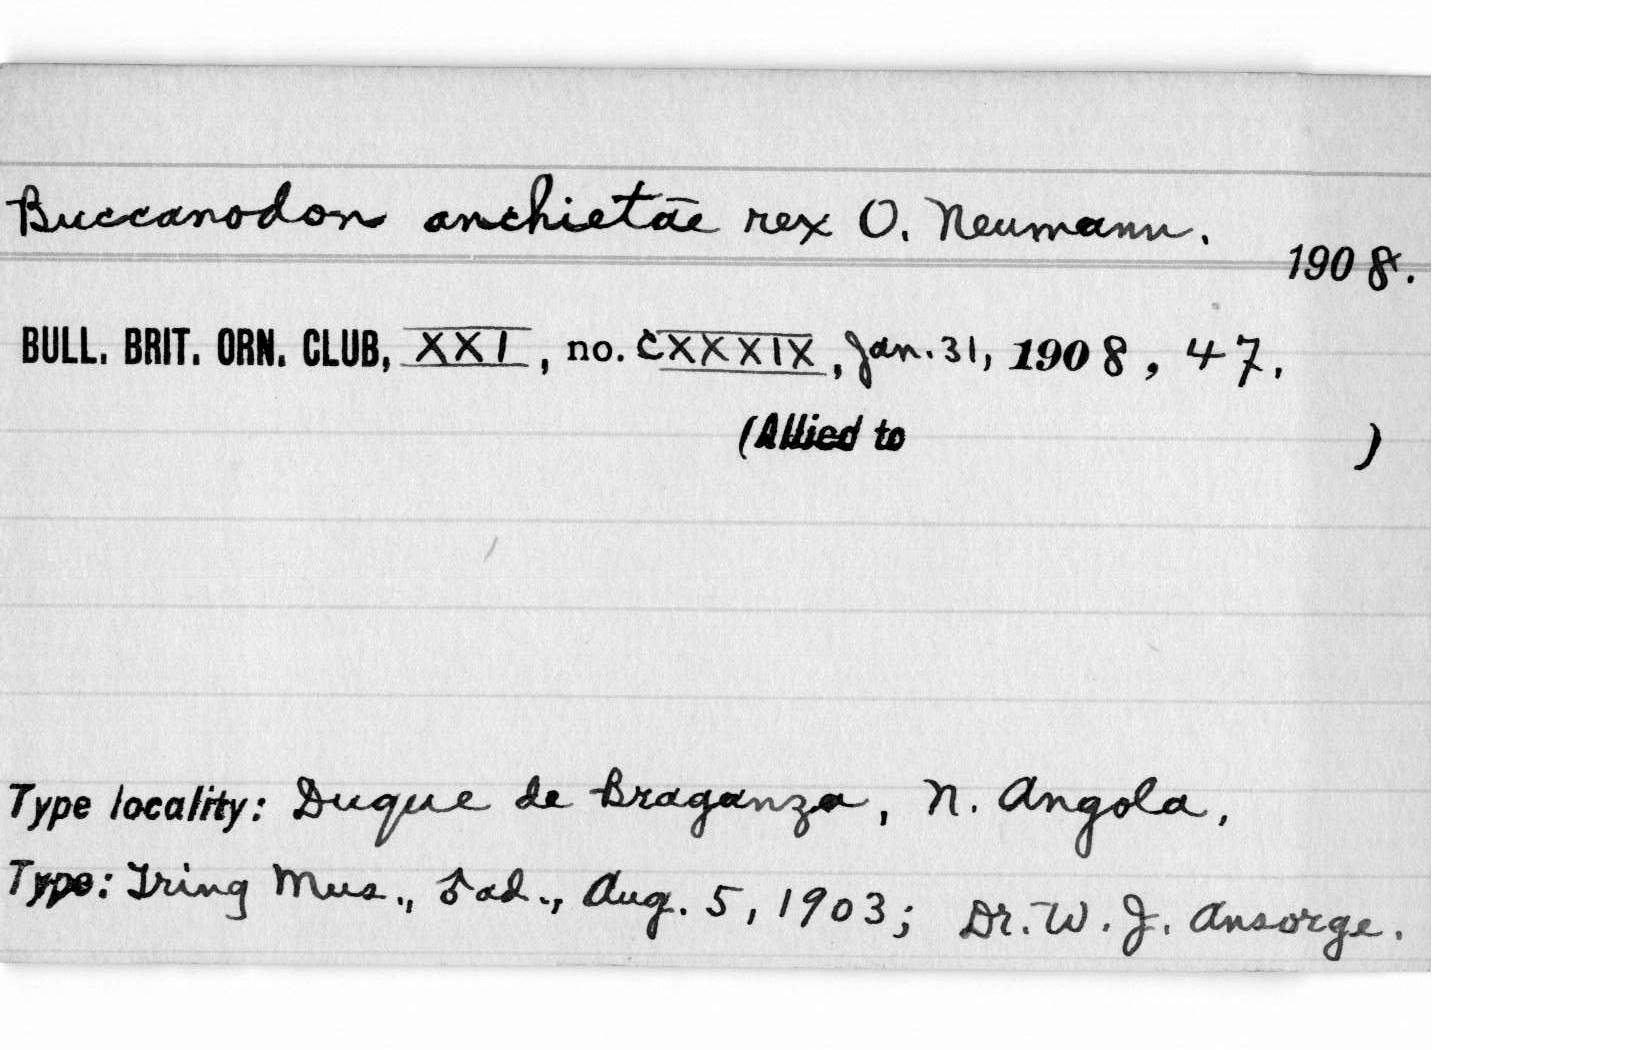 Buccanodon anchietae rex O. Neumann.
1908.
BULL. BRIT. ORN. CLUB, XXI, no. CXXXIX, Jan. 31, 1908, 47.
(Allied to )
Type locality: Duque de Braganza, N. Angola.
Type: Tring Mus., ♂ ad., Aug. 5, 1903; Dr. W. J. Ansorge.